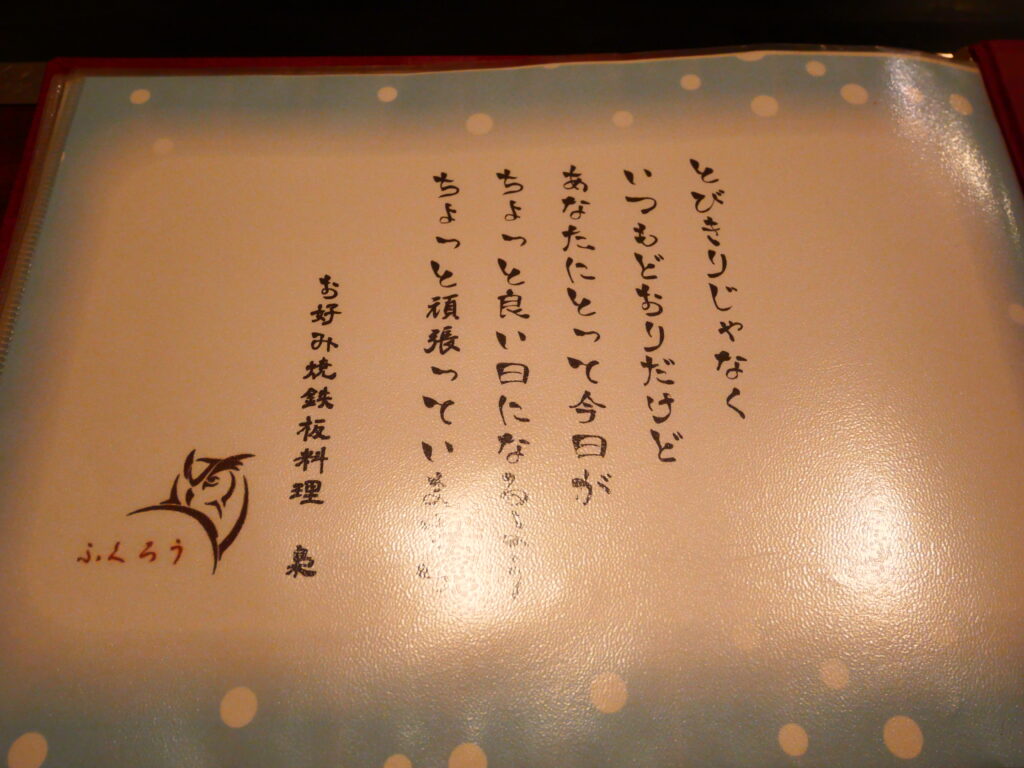 とびきりじゃなく
いつもどおりだけど
あなたにとって今日が
ちょっと良い日になるよう
ちょっと頑張ってい
お好み焼鉄板料理 梟
ふくろう